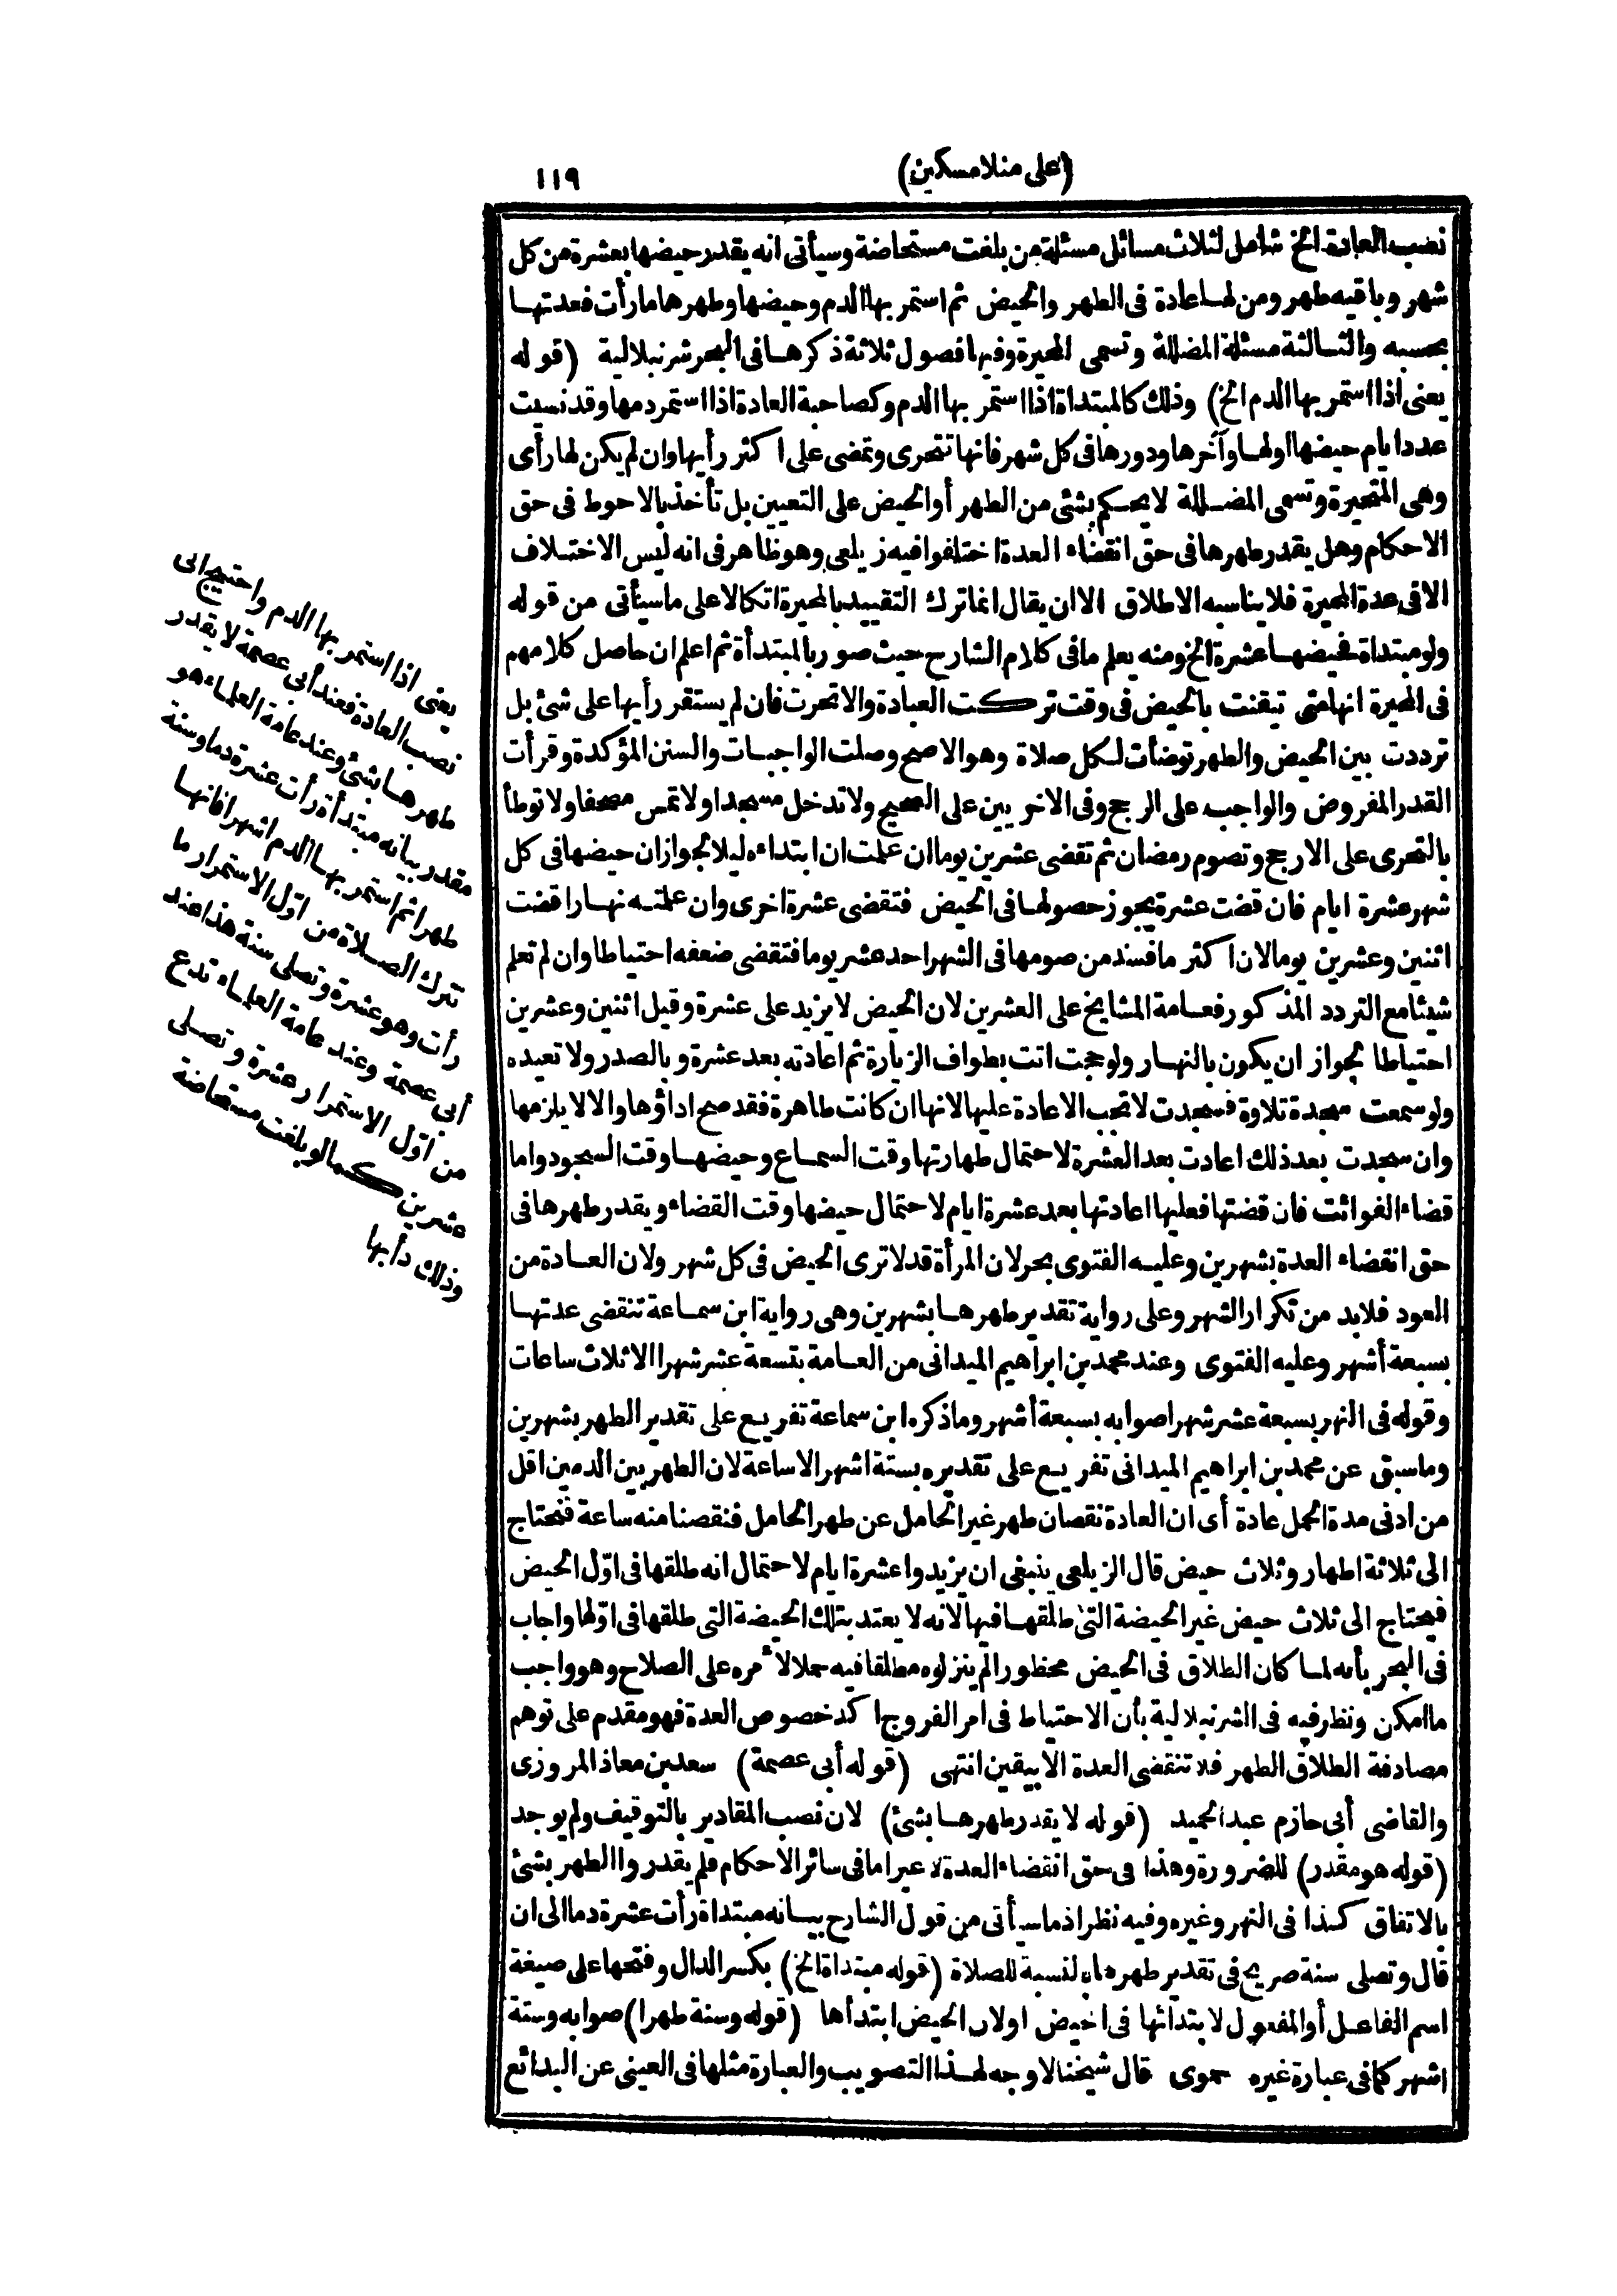 (على منلا مسكين)
١١٩
نصب العادة الخ شامل لثلاث مسائل مسئلة من بلغت مستحاضة وسيأتى انه يقدر حيضها بعشرة من كل
شهر وباقيه طهر ومن لها عادة فى الطهر والحيض ثم استمر بها الدم وحيضها وطهرها ما رأت فعدتها
بحسبه والثالثة مسئلة المضللة وتسمى المحيرة وفيها فصول ثلاثة ذكرها فى البحر شرنبلالية (قوله
يعنى اذا استمر بها الدم الخ) وذلك كالمبتداة اذا استمر بها الدم وكصاحبة العادة اذا استمر دمها وقد نسيت
عدد ايام حيضها اولها وآخرها ودورها فى كل شهر فانها تتحرى وتمضى على اكثر رأيها وان لم يكن لها رأى
وهى المتحيرة وتسمى المضللة لا يحكم بشئ من الطهر أو الحيض على التعيين بل تأخذ بالاحوط فى حق
الاحكام وهل يقدر طهرها فى حق انقضاء العدة اختلفوا فيه زيلعى وهو ظاهر فى انه ليس الاختلاف
الا فى عدة المحيرة فلا يناسبه الاطلاق الا ان يقال انما ترك التقييد بالمحيرة اتكالا على ما سيأتى من قوله
ولو مبتداة فحيضها عشرة الخ ومنه يعلم ما فى كلام الشارح حيث صور بالمبتدأة ثم اعلم ان حاصل كلامهم
فى المحيرة انها متى تيقنت بالحيض فى وقت تركت العبادة والا تحرت فان لم يستقر رأيها على شئ بل
ترددت بين الحيض والطهر توضأت لكل صلاة وهو الاصح وصلت الواجبات والسنن المؤكدة وقرأت
القدر المفروض والواجب على الرجح وفى الاخريين على الصحيح ولا تدخل مسجدا ولا تمس مصحفا ولا توطأ
بالتحرى على الارجح وتصوم رمضان ثم تقضى عشرين يوما ان علمت ان ابتداءه ليلا لجواز ان حيضها فى كل
شهر عشرة ايام فان قضت عشرة يجوز حصولها فى الحيض فتقضى عشرة اخرى وان علمته نهارا قضت
اثنين وعشرين يوما لان اكثر ما فسد من صومها فى الشهر احد عشر يوما فتقضى ضعفه احتياطا وان لم تعلم
شيئا مع التردد المذكور فعامة المشايخ على العشرين لان الحيض لا يزيد على عشرة وقيل اثنين وعشرين
احتياطا لجواز ان يكون بالنهار ولو حجت اتت بطواف الزيارة ثم اعادته بعد عشرة وبالصدر ولا تعيده
ولو سمعت سجدة تلاوة فسجدت لا تجب الاعادة عليها لانها ان كانت طاهرة فقد صح اداؤها والا لا يلزمها
وان سجدت بعد ذلك اعادت بعد العشرة لاحتمال طهارتها وقت السماع وحيضها وقت السجود واما
قضاء الفوائت فان قضتها فعليها اعادتها بعد عشرة ايام لاحتمال حيضها وقت القضاء ويقدر طهرها فى
حق انقضاء العدة بشهرين وعليه الفتوى بحر لان المرأة قد لا ترى الحيض فى كل شهر ولان العادة من
العود فلابد من تكرار الشهر وعلى رواية تقدير طهرها بشهرين وهى رواية ابن سماعة تنقضى عدتها
بسبعة أشهر وعليه الفتوى وعند محمد بن ابراهيم الميدانى من العامة بتسعة عشر شهرا الا ثلاث ساعات
وقوله فى النهر بسبعة عشر شهرا صوابه بسبعة أشهر وما ذكره ابن سماعة تفريع على تقدير الطهر بشهرين
وما سبق عن محمد بن ابراهيم الميدانى تفريع على تقديره بستة اشهر الا ساعة لان الطهر بين الدمين اقل
من ادنى مدة الحمل عادة أى ان العادة نقصان طهر غير الحامل عن طهر الحامل فنقصنا منه ساعة فتحتاج
الى ثلاثة اطهار وثلاث حيض قال الزيلعى ينبغى ان يزيدوا عشرة ايام لاحتمال انه طلقها فى اوّل الحيض
فيحتاج الى ثلاث حيض غير الحيضة التى طلقها فيها لانه لا يعتد بتلك الحيضة التى طلقها فى اوّلها واجاب
فى البحر بأنه لما كان الطلاق فى الحيض محظورا لم ينزلوه مطلقا فيه حملا لأمره على الصلاح وهو واجب
ما امكن ونظر فيه فى الشرنبلالية بأن الاحتياط فى امر الفروج اكد خصوص العدة فهو مقدم على توهم
مصادفة الطلاق الطهر فلا تنقضى العدة الا بيقين انتهى (قوله أبى عصمة) سعد بن معاذ المروزى
والقاضى أبى حازم عبد الحميد (قوله لا يقدر طهرها بشئ) لان نصب المقادير بالتوقيف ولم يوجد
(قوله هو مقدر) للضرورة وهذا فى حق انقضاء العدة لا غير اما فى سائر الاحكام فلم يقدروا الطهر بشئ
بالاتفاق كذا فى النهر وغيره وفيه نظر اذ ما سيأتى من قول الشارح بيانه مبتداة رأت عشرة دما الى ان
قال وتصلى سنة صريح فى تقدير طهرها بالنسبة للصلاة (قوله مبتداة الخ) بكسر الدال وفتحها على صيغة
اسم الفاعل أو المفعول لابتدائها فى الحيض او لان الحيض ابتدأها (قوله وسنة طهرا) صوابه وستة
اشهر كما فى عبارة غيره حموى قال شيخنا لا وجه لهذا التصويب والعبارة مثلها فى العينى عن البدائع
يعنى اذا استمر بها الدم واحتيج الى
نصب العادة فعند أبى عصمة لا يقدر
طهرها بشئ وعند عامة العلماء هو
مقدر بيانه مبتدأة رأت عشرة دما وسنة
طهرا ثم استمر بها الدم اشهرا فانها
تترك الصلاة من اوّل الاستمرار ما
رأت وهو عشرة وتصلى سنة هذا عند
أبى عصمة وعند عامة العلماء تدع
من اوّل الاستمرار عشرة وتصلى
عشرين كما لو بلغت مستحاضة
وذلك دأبها